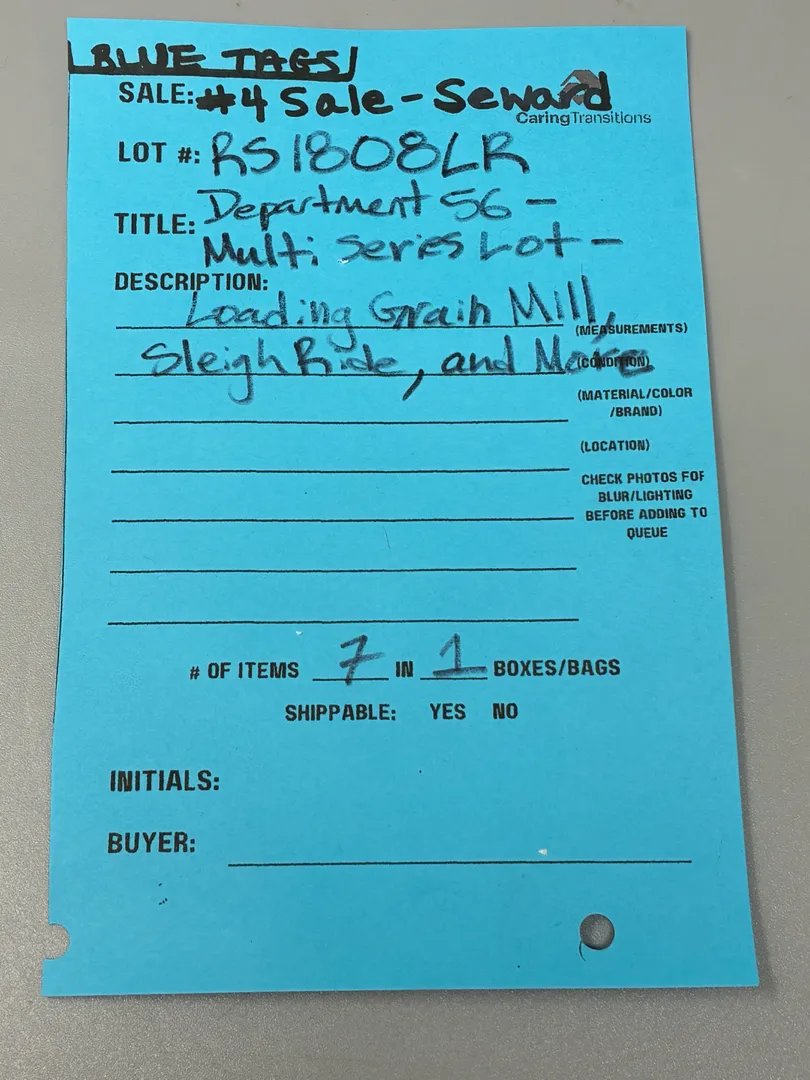 BLUE TAGS
SALE: #4 Sale - Seward
CaringTransitions
LOT #: RS1808LR
TITLE: Department 56 -
Multi Series Lot -
DESCRIPTION:
Loading Grain Mill,
(MEASUREMENTS)
Sleigh Ride, and More
(CONDITION)
(MATERIAL/COLOR
/BRAND)
(LOCATION)
CHECK PHOTOS FOR
BLUR/LIGHTING
BEFORE ADDING TO
QUEUE
# OF ITEMS 7 IN 1 BOXES/BAGS
SHIPPABLE: YES NO
INITIALS:
BUYER: